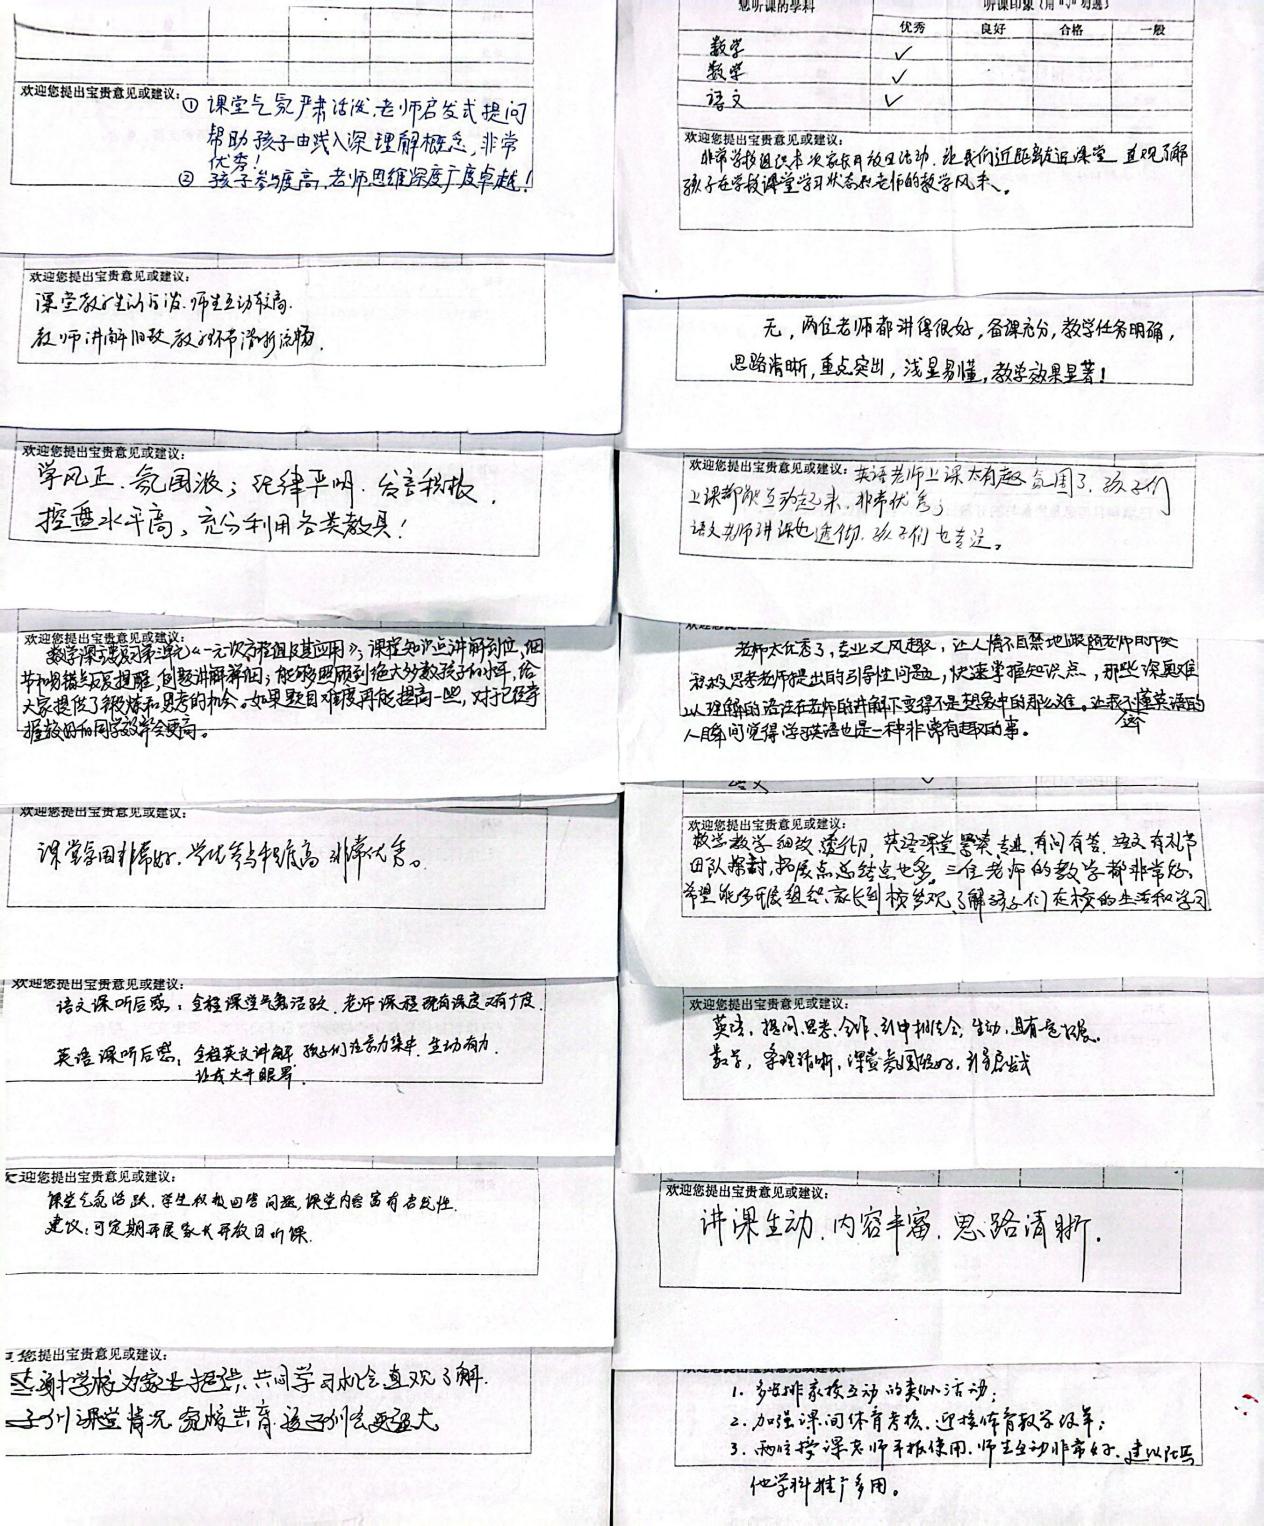 欢迎您提出宝贵意见或建议：
① 课堂气氛严肃活泼，老师启发式提问
帮助孩子由浅入深理解概念，非常
优秀！
② 孩子参与度高，老师思维深度广度卓越！
欢迎您提出宝贵意见或建议：
课堂教学生动活泼，师生互动较高。
教师讲解细致，教学环节清晰流畅。
欢迎您提出宝贵意见或建议：
学风正、氛围浓；纪律严明、发言积极，
控遣水平高，充分利用各类教具！
欢迎您提出宝贵意见或建议：
数学课复习第三单元《一元次方程组及其应用》，课程知识点讲解到位，细
节和易错点反复提醒，例题讲解详细，能够照顾到绝大多数孩子的水平，给
大家提供了锻炼和思考的机会。如果题目难度再能提高一些，对于已经掌
握较好的同学效率会更高。
欢迎您提出宝贵意见或建议：
课堂氛围非常好，学生参与程度高，非常优秀。
欢迎您提出宝贵意见或建议：
语文课听后感：全程课堂气氛活跃，老师课程既有深度又有广度。
英语课听后感：全程英文讲解，孩子们注意力集中，生动有力，
让我大开眼界。
欢迎您提出宝贵意见或建议：
课堂气氛活跃，学生积极回答问题，课堂内容富有启发性。
建议：可定期开展家长开放日听课。
您提出宝贵意见或建议：
谢学校为家长提供共同学习机会直观了解
子们课堂情况 家校共育 孩子们会更强大
您听课的学科
听课印象（用“√”勾选）
优秀 良好 合格 一般
数学 ✓
数学 ✓
语文 ✓
欢迎您提出宝贵意见或建议：
非常学校组织本次家长开放日活动，让我们近距离走近课堂，直观了解
孩子在学校课堂学习状态和老师的教学风采。
无，两位老师都讲得很好，备课充分，教学任务明确，
思路清晰，重点突出，浅显易懂，教学效果显著！
欢迎您提出宝贵意见或建议：英语老师上课太有趣氛围了，孩子们
上课都能互动起来，非常优秀；
语文老师讲课也透彻，孩子们也专注。
老师太优秀了，专业又风趣，让人情不自禁地跟随老师的节奏
积极思考老师提出的引导性问题，快速掌握知识点，那些深奥难
以理解的语法在老师的讲解下变得不是想象中的那么难。让我这不懂英语的
人瞬间觉得学习英语也是一种非常有趣的事。
语文 ✓
欢迎您提出宝贵意见或建议：
数学教学细致透彻，英语课堂专业，有问有答，语文有礼节
团队探讨，拓展点总结点也多，三位老师的教学都非常好，
希望能多开展组织家长到校参观，了解孩子们在校的生活和学习
欢迎您提出宝贵意见或建议：
英语，提问、思考、合作、引申拓展，生动，具有
数学，条理清晰，课堂氛围较好，引导启发式
欢迎您提出宝贵意见或建议：
讲课生动，内容丰富，思路清晰。
1. 多安排家校互动的类似活动；
2. 加强课间体育考核，迎接体育教学改革；
3. 两位授课老师平板使用，师生互动非常好，建议
他学科推广多用。